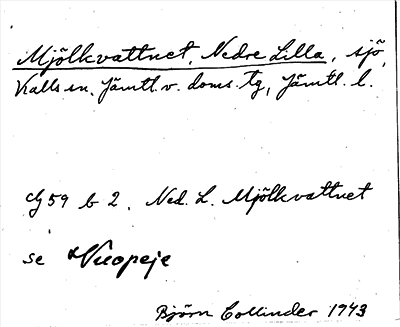 Mjölkvattnet, Nedre Lilla, sjö,
Kalls sn. Jämtl. v. doms. tg, Jämtl. l.
cg 59 b 2. Ned. L. Mjölkvattnet
se Vuopeje
Björn Collinder 1943